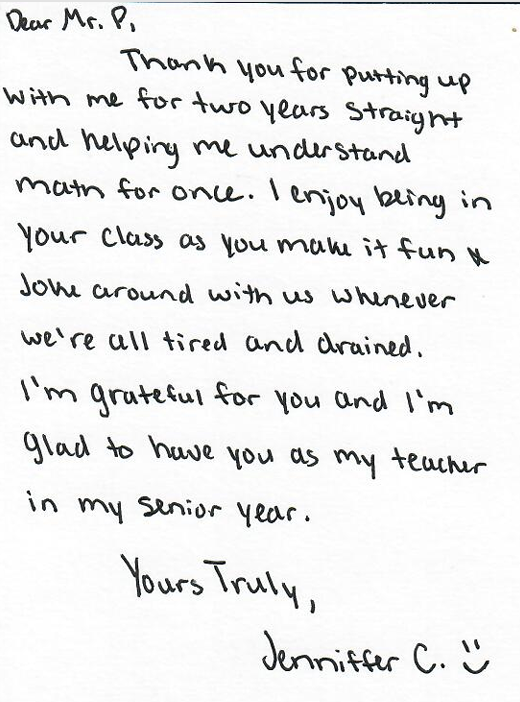 Dear Mr. P,
Thank you for putting up
with me for two years straight
and helping me understand
math for once. I enjoy being in
your class as you make it fun &
joke around with us whenever
we're all tired and drained.
I'm grateful for you and I'm
glad to have you as my teacher
in my senior year.
Yours Truly,
Jenniffer C.